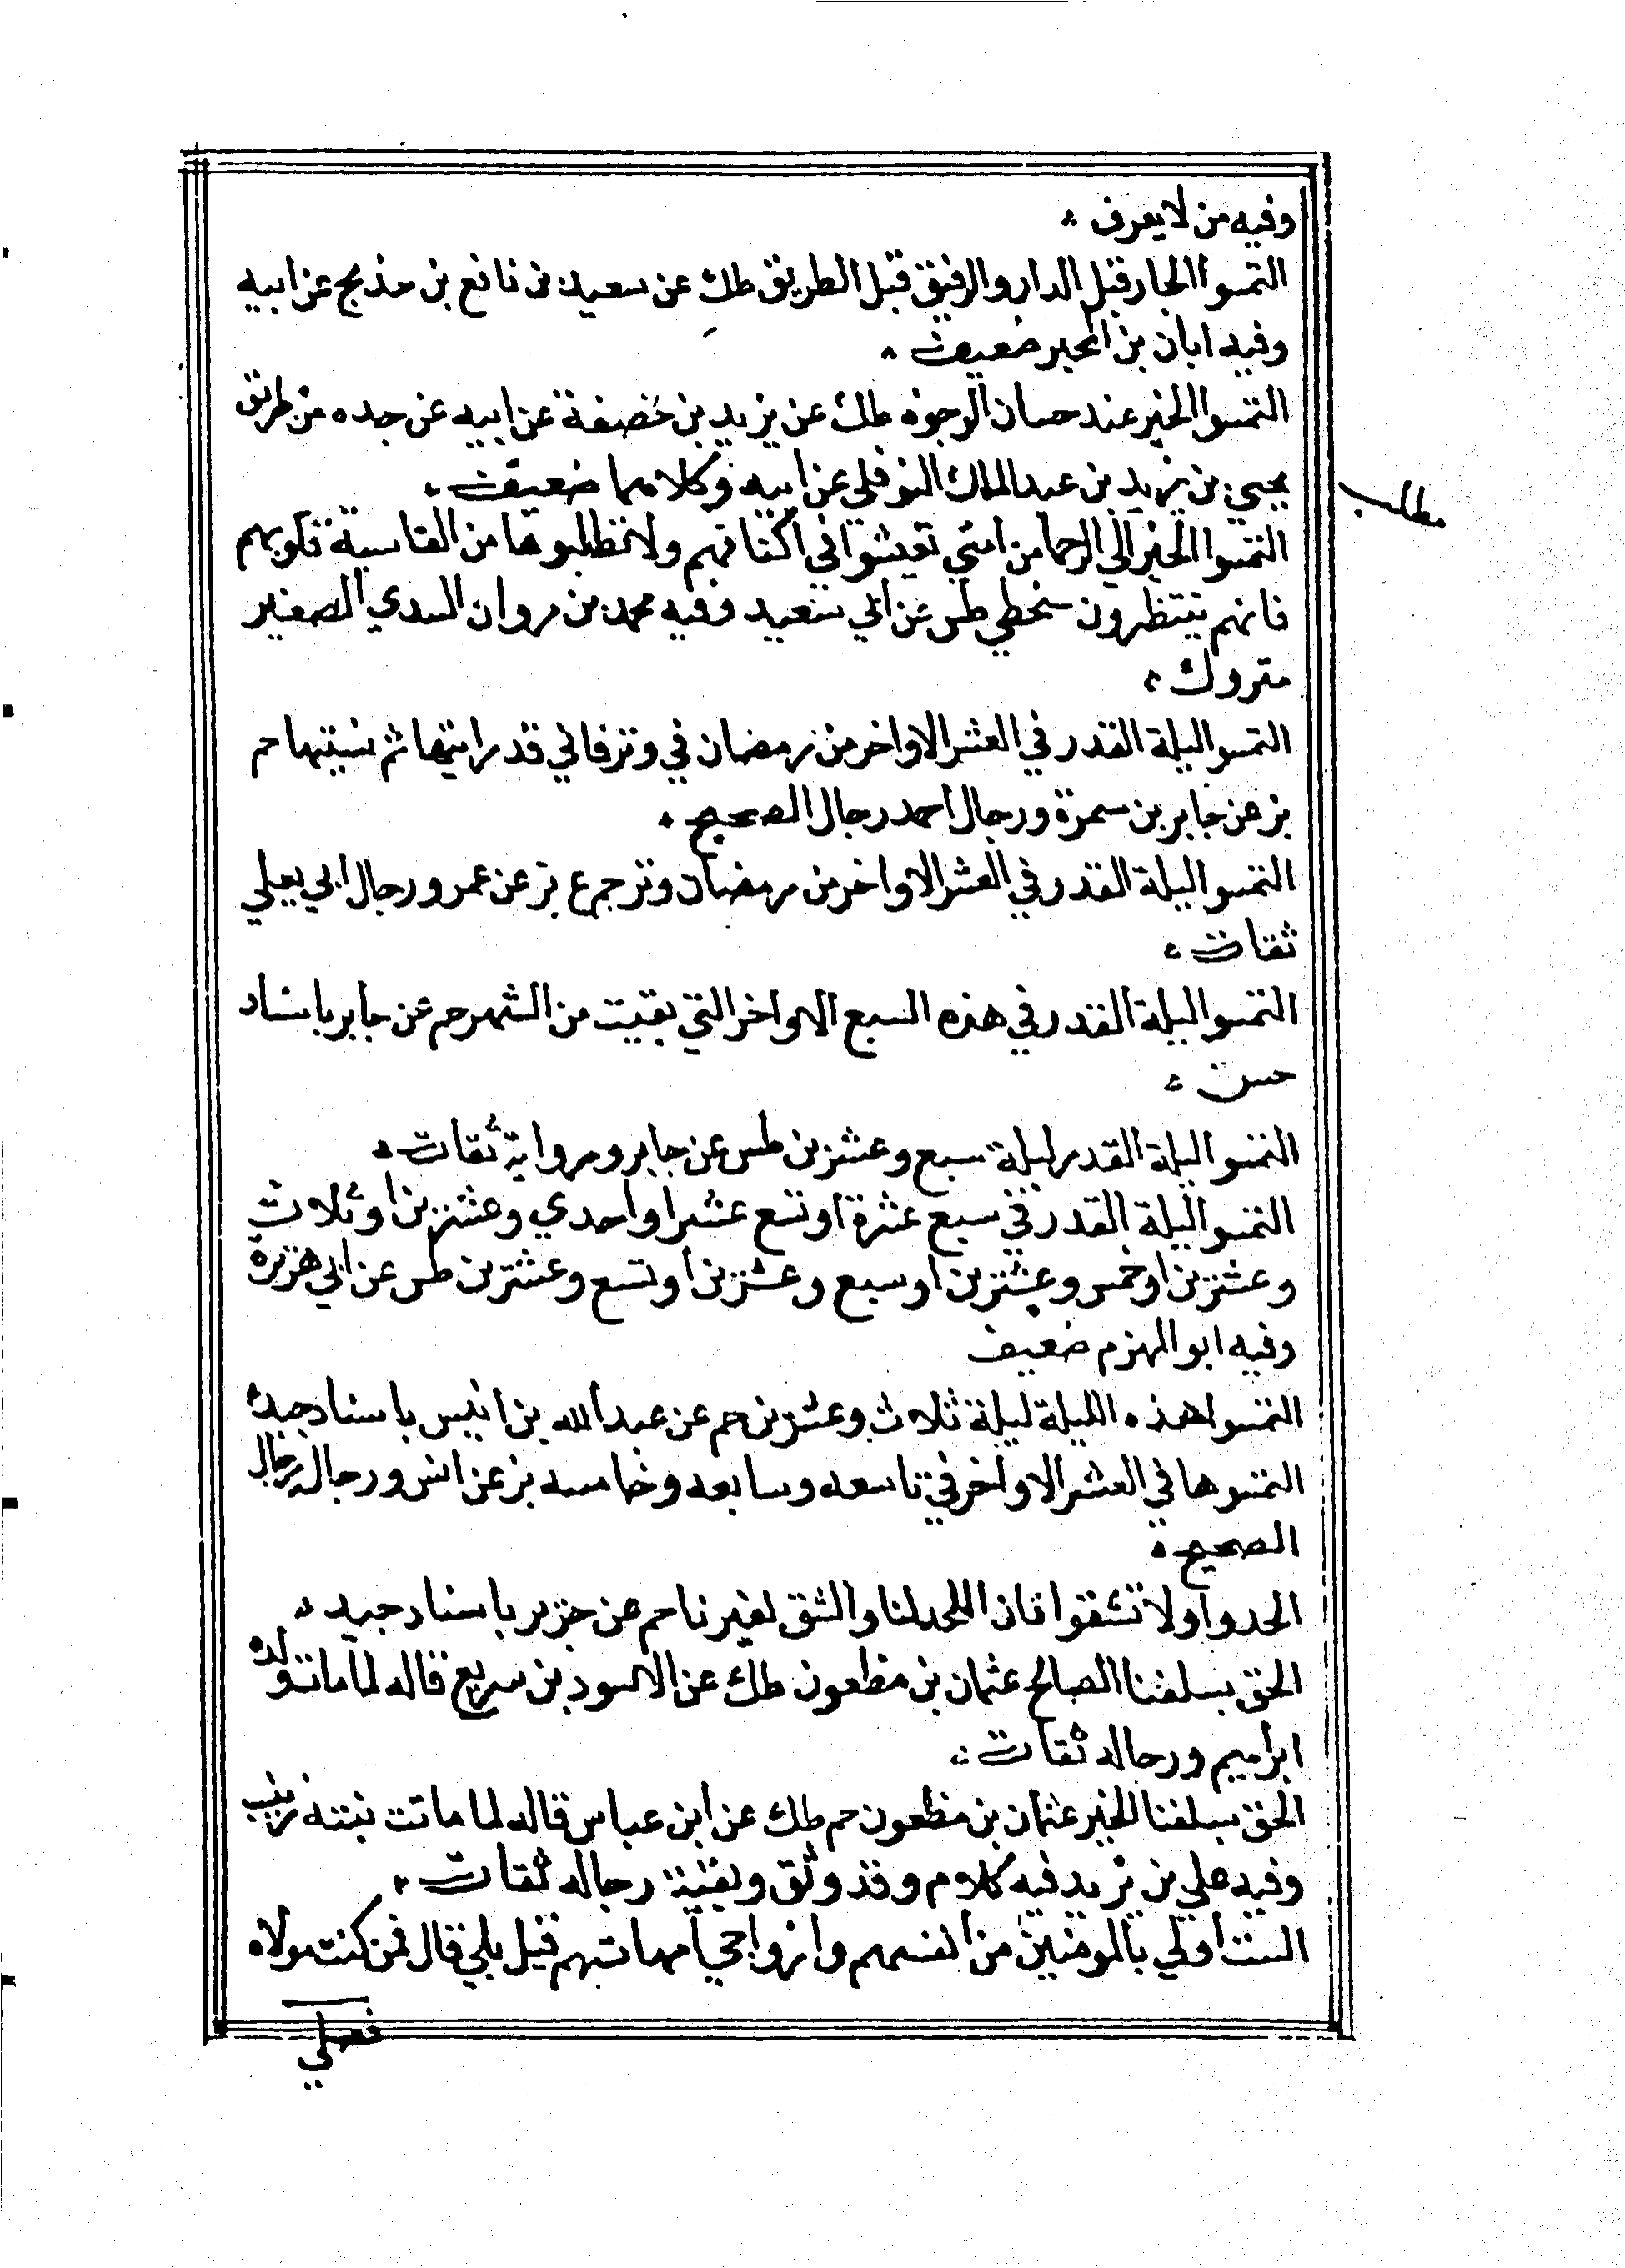 وفيه من لا يعرف ۞
التمسوا الجار قبل الدار والرفيق قبل الطريق طك عن سعيد بن نافع بن خذيج عن ابيه
وفيه ابان بن المحبر ضعيف ۞
التمسوا الخير عند حسان الوجوه طك عن يزيد بن خصفة عن ابيه عن جده من طريق
يحيى بن يزيد بن عبد الملك النوفلي عن ابيه وكلاهما ضعيف ۞
مطلب
التمسوا الخير الي الرحما من امتي تعيشوا في اكنافهم ولا تطلبوها من القاسية قلوبهم
فانهم ينتظرون سخطي طس عن ابي سعيد وفيه محمد بن مروان السدي الصغير
متروك ۞
التمسوا ليلة القدر في العشر الاواخر من رمضان في وتر فاني قد رايتها ثم نسيتها حم
بز عن جابر بن سمرة ورجال احمد رجال الصحيح ۞
التمسوا ليلة القدر في العشر الاواخر من رمضان وتر حم ع بز عن عمر ورجال ابي يعلي
ثقات ۞
التمسوا ليلة القدر في هذه السبع الاواخر التي بقيت من الشهر حم عن جابر باسناد
حسن ۞
التمسوا ليلة القدر ليلة سبع وعشرين طس عن جابر ورواية ثقات ۞
التمسوا ليلة القدر في سبع عشرة او تسع عشرا واحدي وعشرين او ثلاث
وعشرين او خمس وعشرين او سبع وعشرين او تسع وعشرين طس عن ابي هريرة
وفيه ابو المهزم ضعيف
التمسوا هذه الليلة ليلة ثلاث وعشرين حم عن عبد الله بن انيس باسناد جيد ۞
التمسوها في العشر الاواخر في تاسعه وسابعه وخامسه بز عن انس ورجاله رجال
الصحيح ۞
الحدوا ولا تشقوا فان اللحد لنا والشق لغيرنا حم عن جرير باسناد جيد ۞
الحق بسلفنا الصالح عثمان بن مظعون طك عن الاسود بن سريع قاله لما مات ولده
ابراهيم ورجاله ثقات ۞
الحق بسلفنا الخير عثمان بن مظعون حم طك عن ابن عباس قاله لما ماتت بنته زينب
وفيه علي بن يزيد فيه كلام وقد وثق وبقية رجاله ثقات ۞
الست اولي بالمومنين من انفسهم وازواجي امهاتهم قيل بلي قال فمن كنت مولاه
فعلي